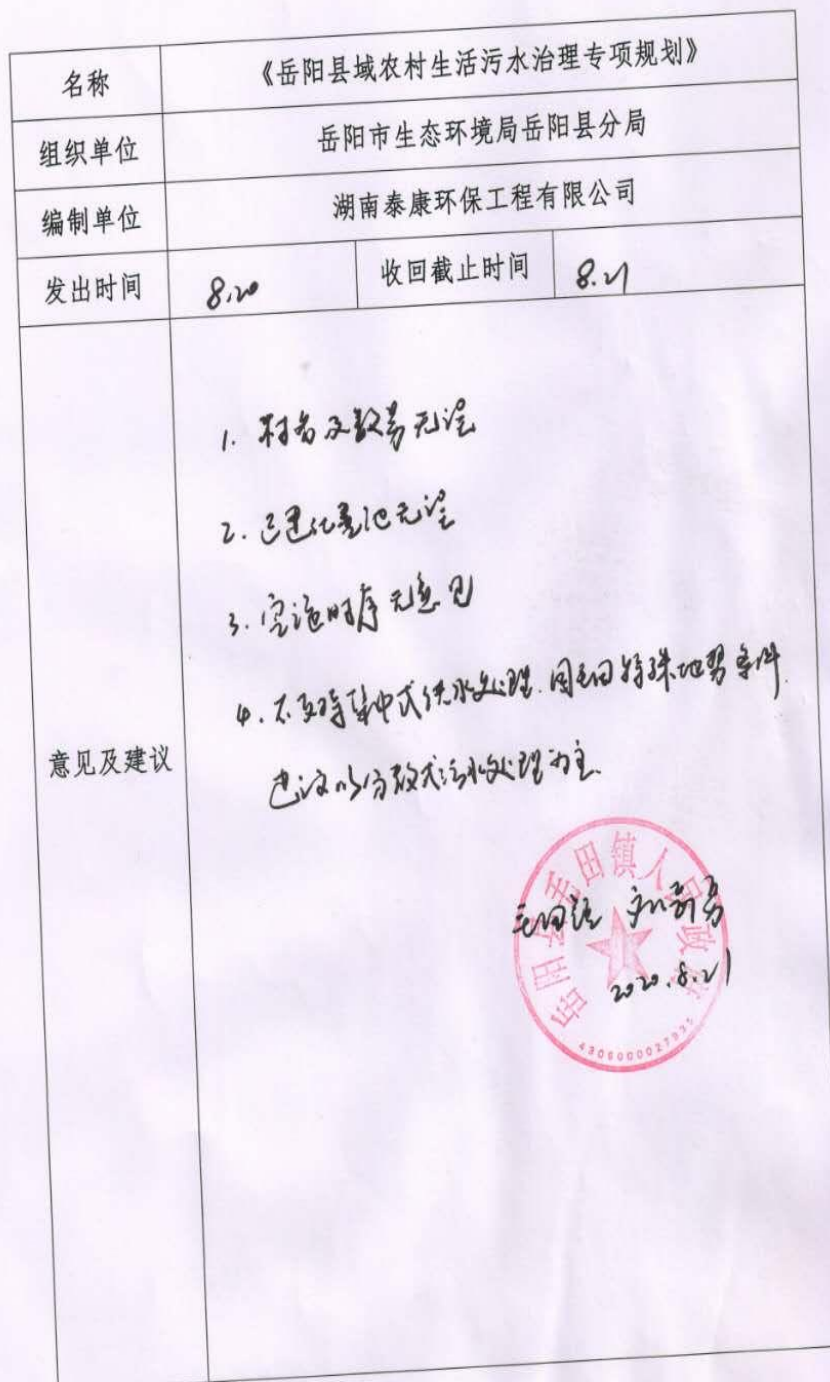 名称 《岳阳县域农村生活污水治理专项规划》
组织单位 岳阳市生态环境局岳阳县分局
编制单位 湖南泰康环保工程有限公司
发出时间 8.20 收回截止时间 8.21
意见及建议
1. 村名及数字无误
2. 已建化粪池无误
3. 实施时序无意见
4. 不支持集中式供水处理.因毛田特殊地势条件
建议以分散式污水处理为主.
岳阳县毛田镇人民政府
毛田镇 刘
2020.8.21